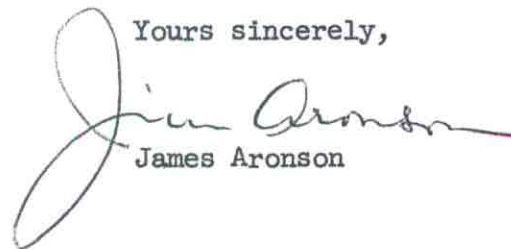 Yours sincerely,
Jim Aronson
James Aronson